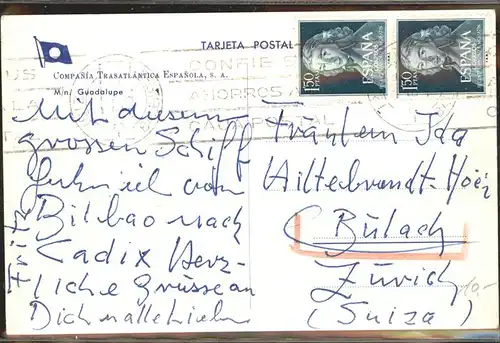 TARJETA POSTAL
COMPAÑÍA TRASATLÁNTICA ESPAÑOLA, S. A.
M/n. Guadalupe
1'50 PTAS
ESPAÑA
CORREOS
1'50 PTAS
ESPAÑA
CORREOS
CONFIE S
AHORROS A
CAJA POSTAL
Mit diesem
grossen Schiff
fuhr ich von
Bilbao nach
Cadix Herz-
liche Grüsse an
Dich & alle Lieben
Fritz
Fräulein Ida
Hiltebrandt-
Bülach
Zürich
(Suiza)
10.-